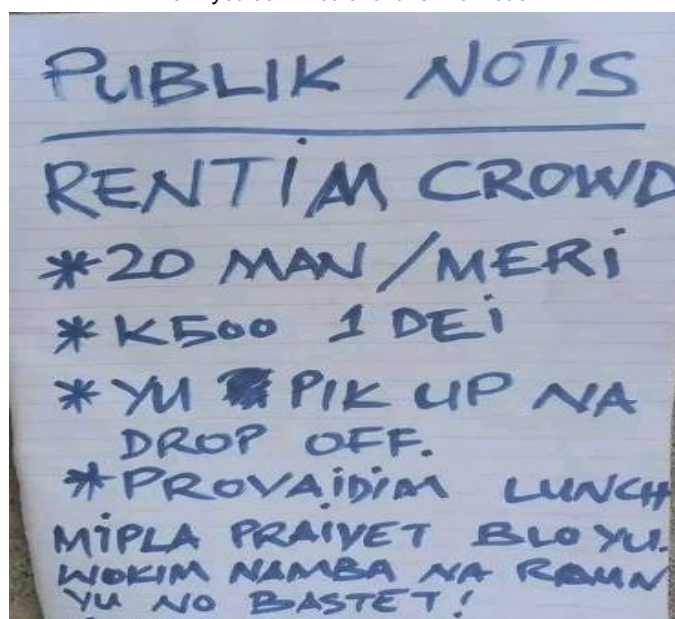 PUBLIK NOTIS
RENTIM CROWD
*20 MAN/MERI
*K500 1 DEI
*YU PIK UP NA
DROP OFF.
*PROVAIDIM LUNCH
MIPLA PRAIVET BLO YU.
WOKIM NAMBA NA RAUN
YU NO BASTET!